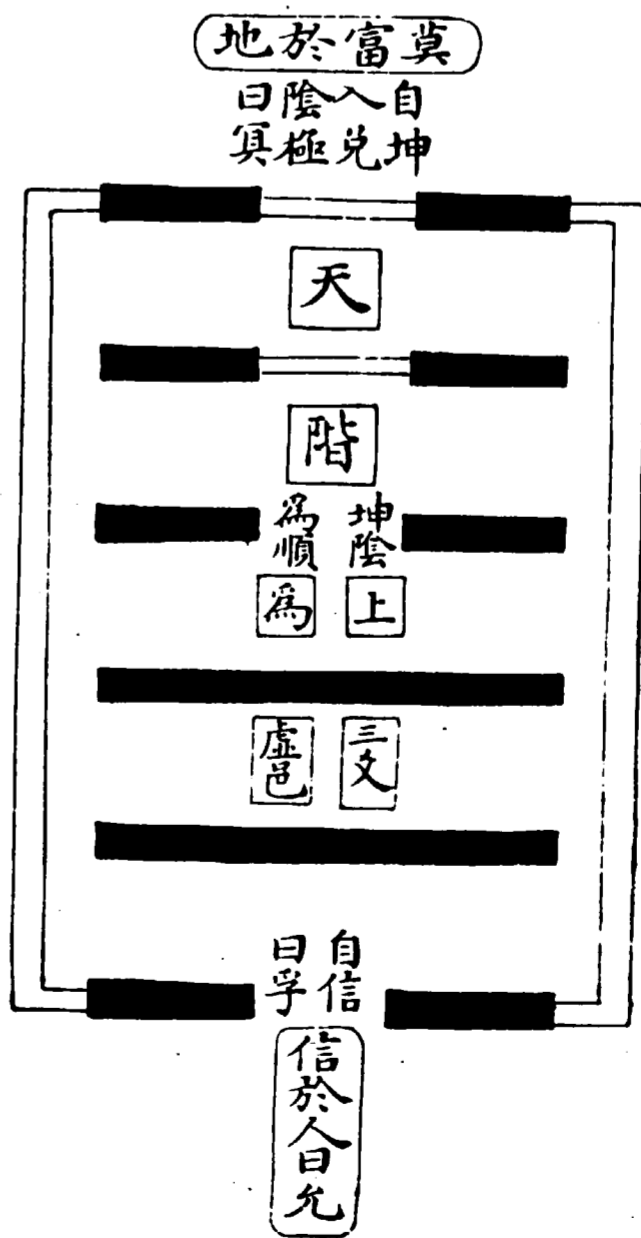 莫富於地
自坤
入兌
陰極
曰冥
天
階
坤陰
爲順
上
爲
三爻
虛邑
自信
曰孚
信於人曰允